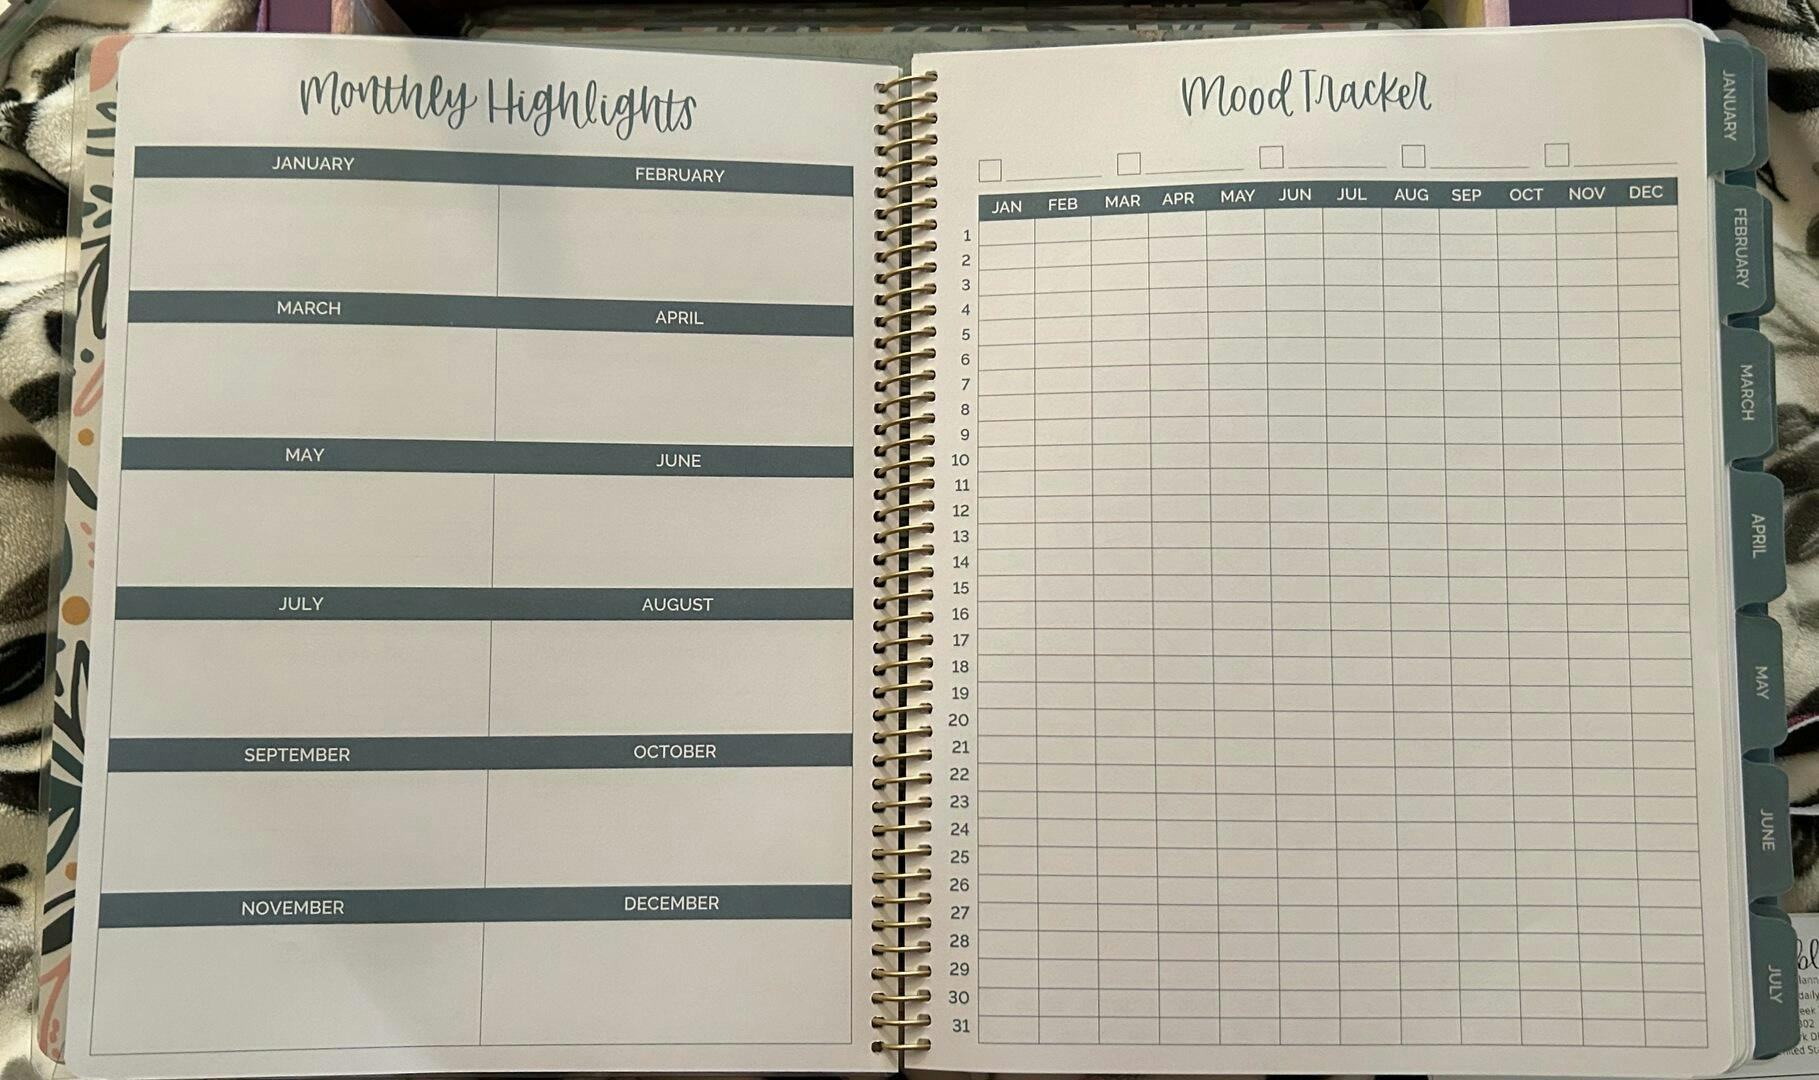 Monthly Highlights
JANUARY FEBRUARY
MARCH APRIL
MAY JUNE
JULY AUGUST
SEPTEMBER OCTOBER
NOVEMBER DECEMBER
Mood Tracker
JAN FEB MAR APR MAY JUN JUL AUG SEP OCT NOV DEC
1
2
3
4
5
6
7
8
9
10
11
12
13
14
15
16
17
18
19
20
21
22
23
24
25
26
27
28
29
30
31
JANUARY
FEBRUARY
MARCH
APRIL
MAY
JUNE
JULY